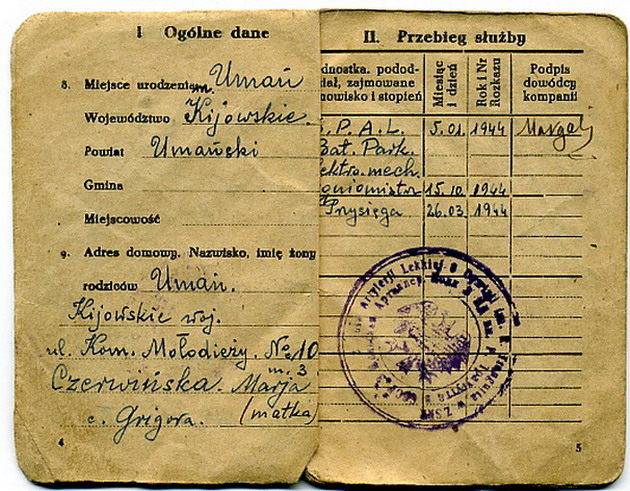 I Ogólne dane
8. Miejsce urodzenia m. Umań
Województwo Kijowskie.
Powiat Umański
Gmina
Miejscowość
9. Adres domowy. Nazwisko, imię żony
rodziców Umań.
Kijowskie woj.
ul. Kom. Mołodieży. No 10
m. 3
Czerwińska. Marja
c. Grigora. (matka)
4
II. Przebieg służby
dnostka. podod-
iał, zajmowane
nowisko i stopień
Miesiąc i dzień
Rok i Nr Rozkazu
Podpis
dowódcy
kompanii
P.A.L. 5.01. 1944
Bat. Park.
ektro.mech.
15.10. 1944
Przysięga 26.03. 1944
Artylerji Lekkiej
5